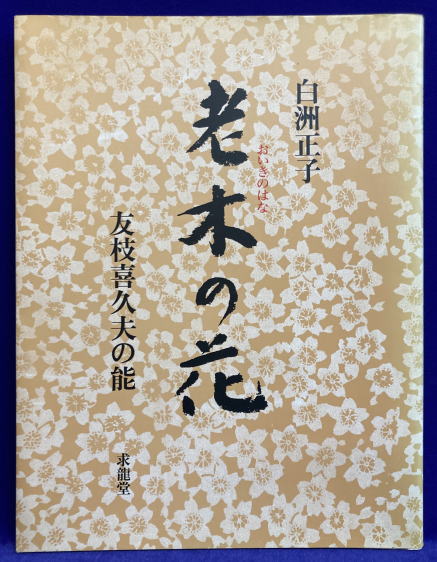 白洲正子
老木の花
おいきのはな
友枝喜久夫の能
求龍堂